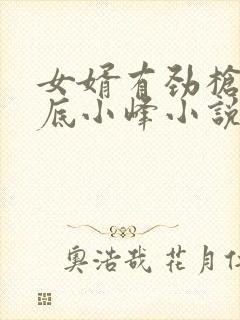 女婿有劲槍
底小峰小説
奥浩哉 花月仁